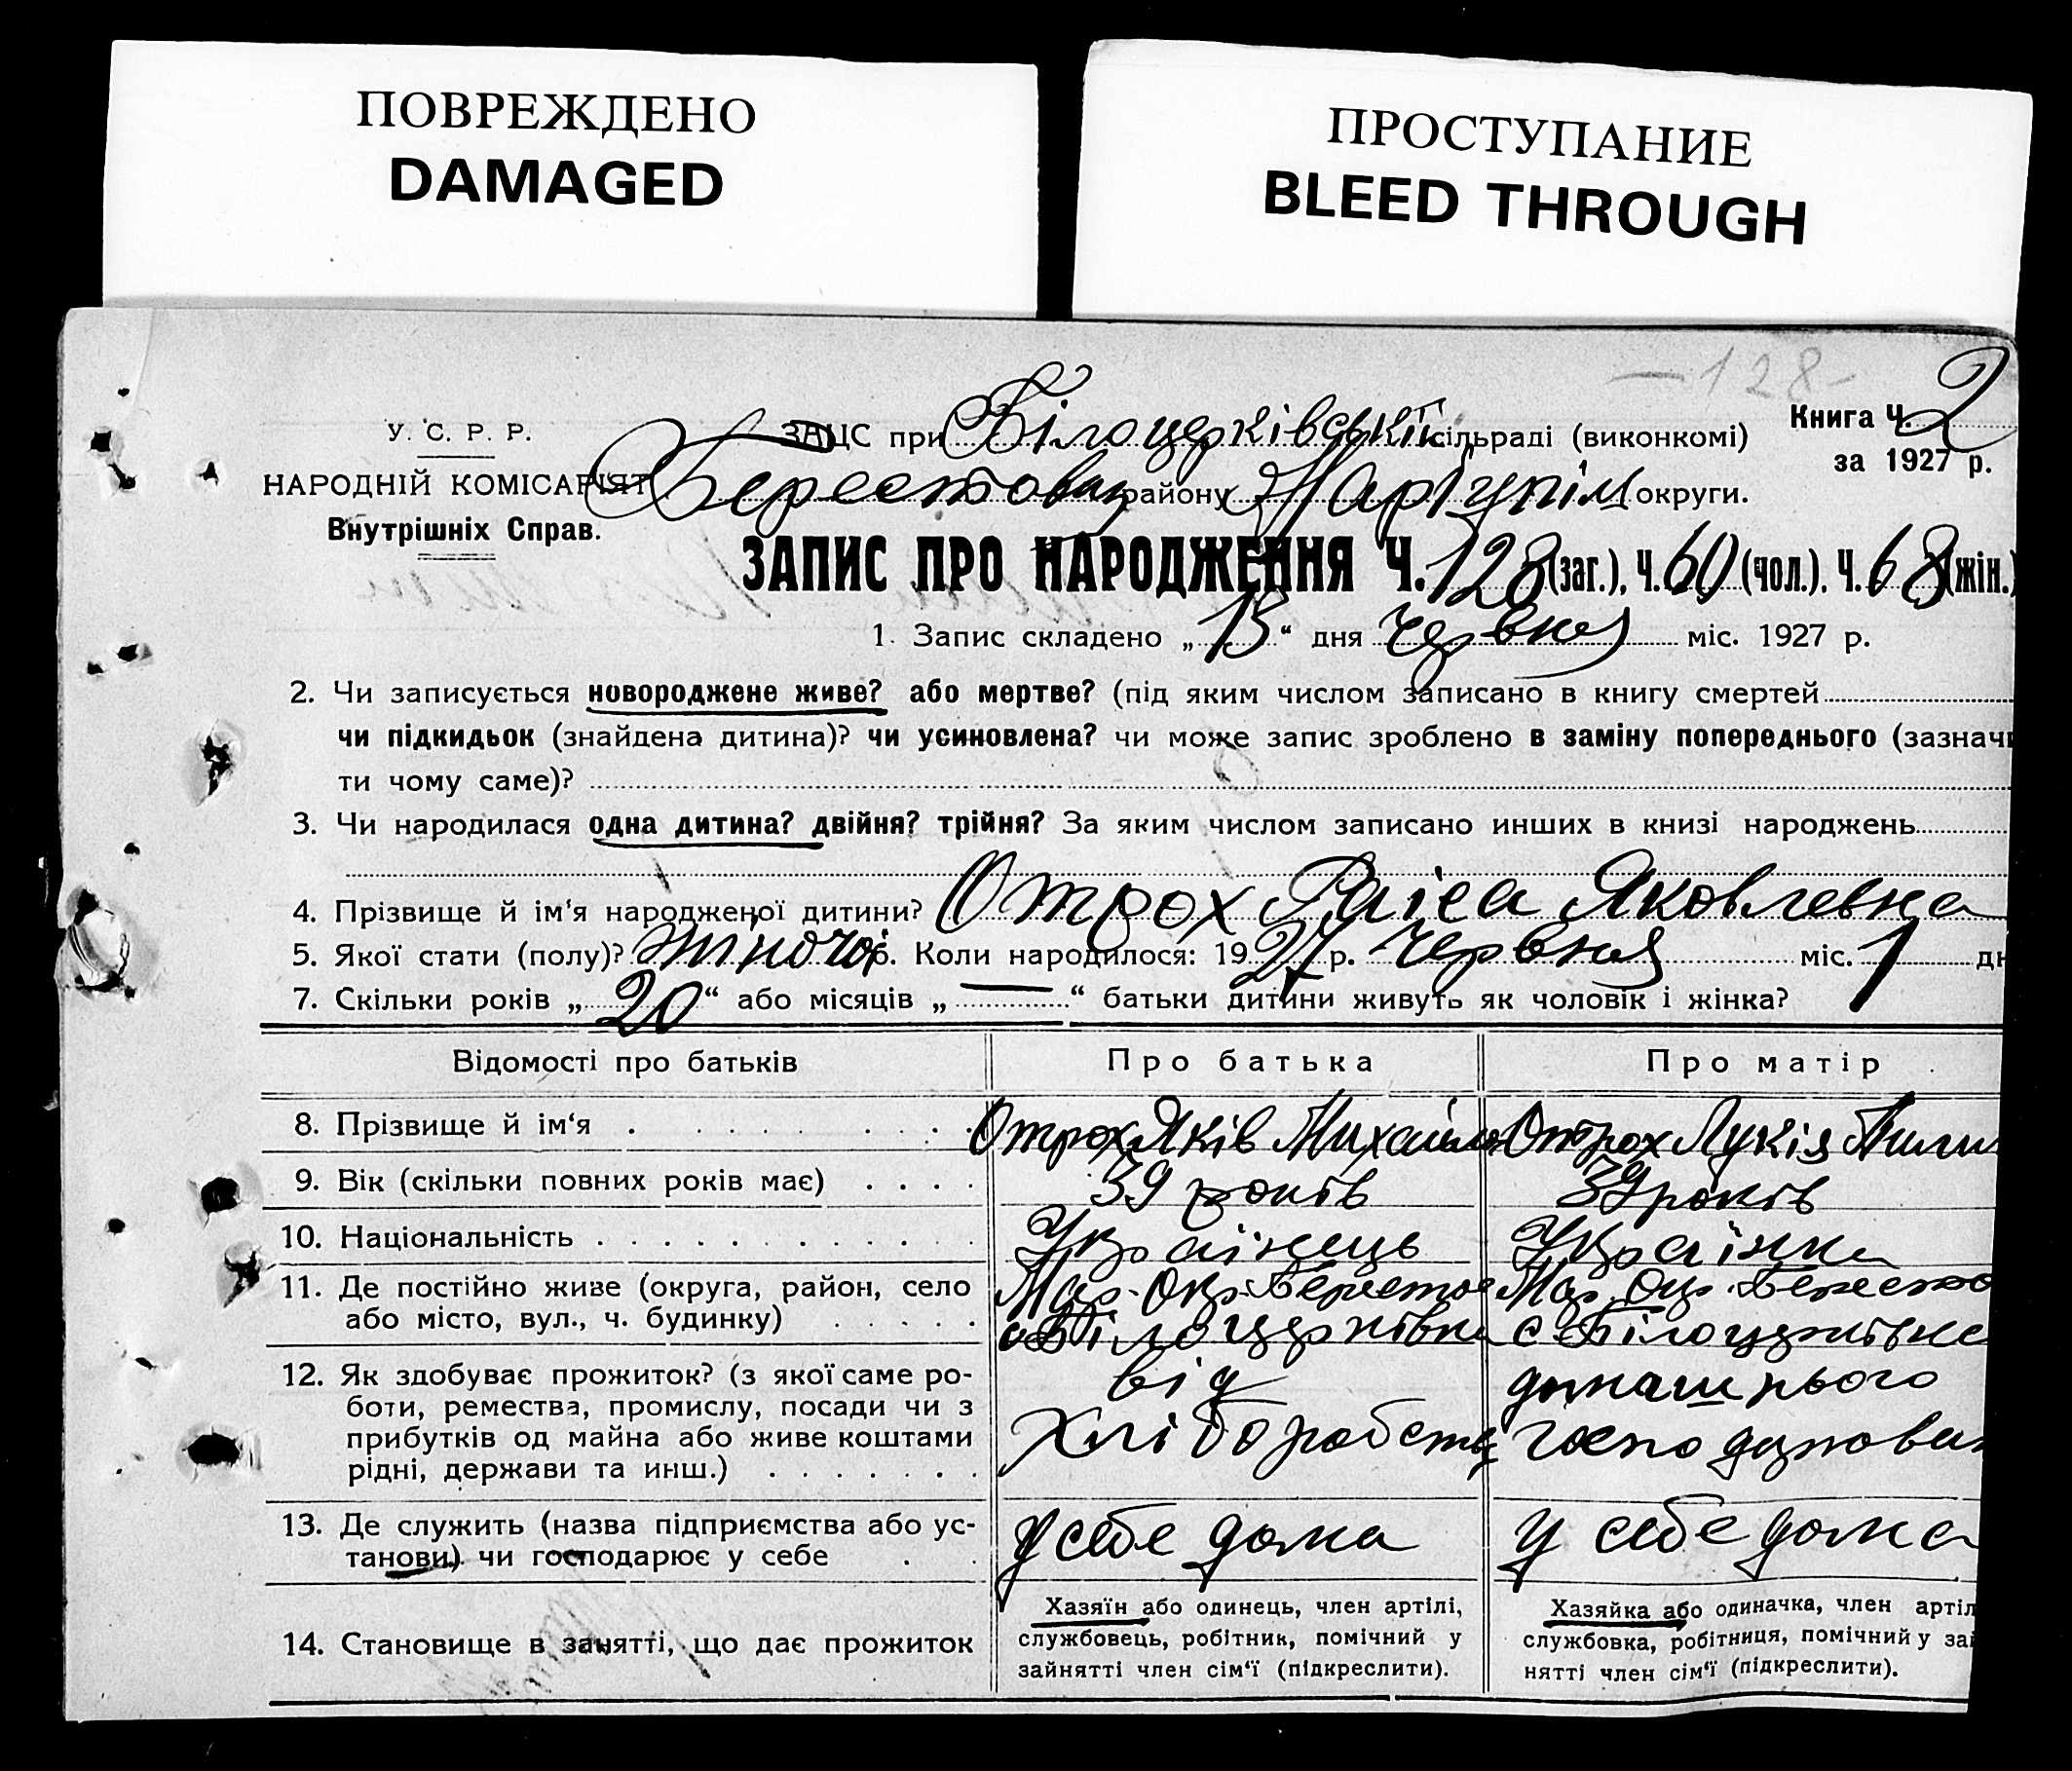 ПОВРЕЖДЕНО
DAMAGED
ПРОСТУПАНИЕ
BLEED THROUGH
—128—
У. С. Р. Р.
НАРОДНІЙ КОМІСАРІЯТ
Внутрішніх Справ.
ЗАЦС при Білоцерківській сільраді (виконкомі)
Берестован району Маріупіл округи.
Книга Ч. 2
за 1927 р.
ЗАПИС ПРО НАРОДЖЕННЯ Ч. 128 (заг.), Ч. 60 (чол.). Ч. 68 (жін.)
1. Запис складено „13“ дня червня міс. 1927 р.
2. Чи записується новороджене живе? або мертве? (під яким числом записано в книгу смертей
чи підкидьок (знайдена дитина)? чи усиновлена? чи може запис зроблено в заміну попереднього (зазначи
ти чому саме)?
3. Чи народилася одна дитина? двійня? трійня? За яким числом записано инших в книзі народжень
4. Прізвище й ім'я народженої дитини? Отрох Раіса Яковлевна
5. Якої стати (полу)? жіночої 6. Коли народилося: 1927 р. червня міс. 1 дн
7. Скільки років „20“ або місяців „—“ батьки дитини живуть як чоловік і жінка?
Відомості про батьків Про батька Про матір
8. Прізвище й ім‘я Отрох Яків Михайлов Отрох Лукія
9. Вік (скільки повних років має) 39 років 39 років
10. Національність Украінець Украінка
11. Де постійно живе (округа, район, село Мар. Окр. Берестов Мар. Окр. Берестов
або місто, вул., ч. будинку) с Білоцерківка с Білоцерківка
12. Як здобуває прожиток? (з якої саме ро- від домашнього
боти, ремества, промислу, посади чи з Хліборобства господарован
прибутків од майна або живе коштами
рідні, держави та инш.)
13. Де служить (назва підприємства або ус- у себе дома у себе дома
танови) чи господарює у себе
14. Становище в занятті, що дає прожиток
Хазяїн або одинець, член артілі,
службовець, робітник, помічний у
зайнятті член сім‘ї (підкреслити).
Хазяйка або одиначка, член артіл
службовка, робітниця, помічний у зай
нятті член сім‘ї (підкреслити).